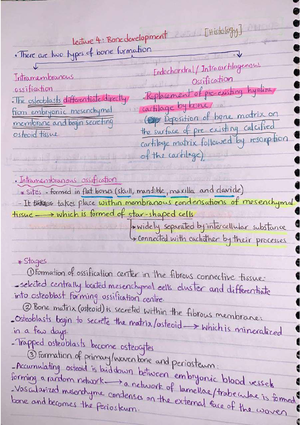 Lecture 4: Bone development [Histology]
• There are two types of bone formation
Intramembranous ossification
Endochondral / Intracartilagenous Ossification
- The osteoblasts differentiate directly from embryonic mesenchymal membrane and begin secreting osteoid tissue
- Replacement of pre-existing hyaline cartilage by bone
(Deposition of bone matrix on the surface of pre existing calcified cartilage matrix followed by resorption of the cartilage)
• Intramembranous ossification
• Sites - formed in flat bones (skull, mandible, maxilla and clavicle)
- It takes place within membranous condensations of mesenchymal
tissue → which is formed of star-shaped cells
↳ widely separated by intercellular substance
↳ connected with eachother by their processes
• Stages
① Formation of ossification center in the fibrous connective tissue:
- selected centrally located mesenchymal cells cluster and differentiate
into osteoblast forming ossification centre.
② Bone matrix (osteoid) is secreted within the fibrous membrane:
- Osteoblasts begin to secrete the matrix/osteoid → which is mineralized
in a few days
- Trapped osteoblasts become osteocytes
③ Formation of primary/woven bone and periosteum:
- Accumulating osteoid is laid down between embryonic blood vessels
forming a random network → a network of lamellae/trabeculae is formed
- Vascularized mesenchyme condenses on the external face of the woven
bone and becomes the periosteum.